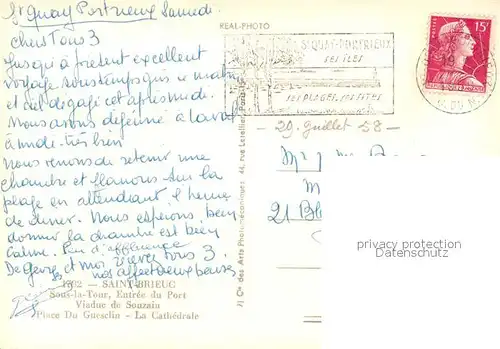 St Quay Portrieux Samedi.
Chers Tous 3
Jusqu'à présent excellent
voyage sous temps gris ce matin
et ciel dégagé cet après midi.
Nous avons déjeuné à Laval
à midi. très bien
Nous venons de retenir une
chambre et flanons sur la
plage en attendant l'heure
de diner. Nous espérons bien
dormir la chambre est bien
calme. Peu d'affluence
De et moi à vous 3.
nos affectueux baisers
1392 — SAINT-BRIEUC
Sous-la-Tour, Entrée du Port
Viaduc de Souzain
Place Du Guesclin — La Cathédrale
REAL-PHOTO
Cie des Arts Photomécaniques 44, rue Letellier, Paris
ST QUAY-PORTRIEUX
SES ILES
SES PLAGES
15F
- 29 Juillet 58 -
M
21
privacy protection
Datenschutz